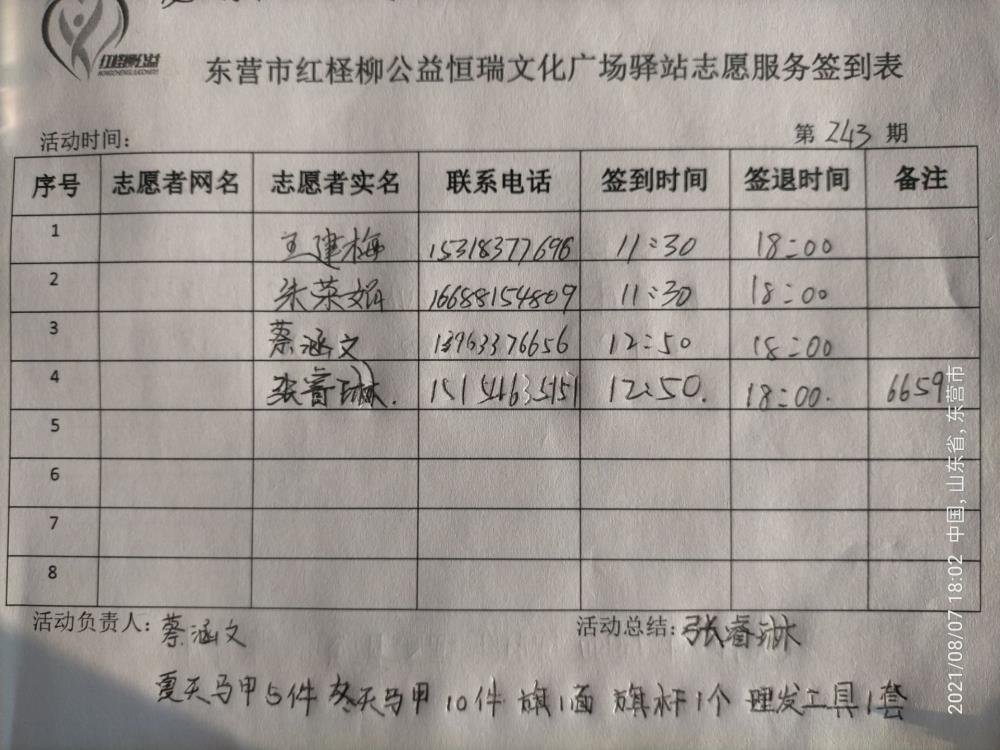 红柽柳公益
东营市红柽柳公益恒瑞文化广场驿站志愿服务签到表
活动时间: 第 243 期
序号 志愿者网名 志愿者实名 联系电话 签到时间 签退时间 备注
1 王建梅 15318377696 11:30 18:00
2 朱荣娟 16688154809 11:30 18:00
3 蔡涵文 13963376656 12:50 18:00
4 张睿琳. 15154635151 12:50. 18:00. 6659
5
6
7
8
活动负责人: 蔡涵文 活动总结: 张睿琳
夏天马甲5件 冬天马甲10件 旗1面 旗杆1个 理发工具1套
2021/08/07 18:02 中国, 山东省, 东营市